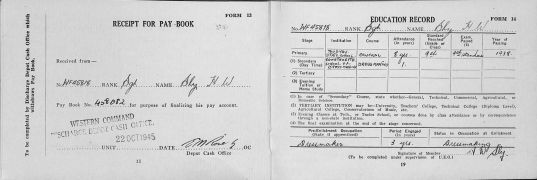 FORM 13
RECEIPT FOR PAY BOOK
To be completed by Discharge Depot Cash Office which withdraws Pay Book.
Received from—
No. WF45818 RANK Sgt Bly H W
Pay Book No. 458082 for purpose of finalizing his pay account.
WESTERN COMMAND
DISCHARGE DEPOT CASH OFFICE.
22 OCT 1945
UNIT DATE OC.
Depot Cash Office
18
FORM 14
EDUCATION RECORD
No. WF45818 RANK Sgt NAME Bly H W
Stage Institution Course Attendance (in years) Standard Reached (Grade or Class) Exam. Passed Year of Passing
Primary General 8 yrs 9th 1938
(1) Secondary (Day Time) Dressmaking 1
(2) Tertiary
(3) Evening Tuition or Home Study
(1) In case of "Secondary" Course, state whether—General, Technical, Commercial, Agricultural, or Domestic Science.
(2) TERTIARY INSTITUTION may be—University, Teachers' College, Technical College (Diploma Level), Agricultural College, Conservatorium of Music, etc.
(3) Evening Classes at Tech. or Tutor School, or courses done by class attendance or by correspondence through a non-state institution.
(4) The final examination at the end of the stage concerned.
Pre-Enlistment Occupation (State if apprenticed) Period Engaged (In Years) Status in Occupation at Enlistment
Dressmaker 3 yrs. Dressmaking
Signature of Member H W Bly
(To be completed under supervision of U.E.O.)
19